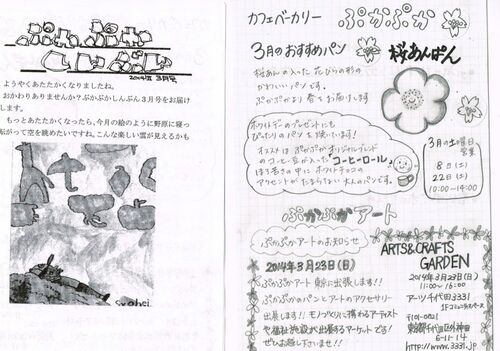 ぷかぷか
しんぶん
2014年 3月号
ようやくあたたかくなりましたね。
おかわりありませんか?ぷかぷかしんぶん3月号をお届け
します。
もっとあたたかくなったら、今月の絵のように野原に寝っ
転がって空を眺めたいですね。こんな楽しい雲が見えるかも
カフェベーカリー ぷかぷか
3月のおすすめパン 桜あんぱん
桜あんの入った花びらの形の
かわいいパンです。
ぷかぷかより春をお届けします
ホワイトデーのプレゼントにも
ぴったりのパンも焼いています!
オススメは ぷかぷかオリジナルブレンド
のコーヒー豆が入った"コーヒーロール"
ほろ苦さの中に ホワイトチョコの
アクセントがたまらない大人のパンです。
3月の土曜日
営業
8日(土)
22日(土)
10:00~14:00
ぷかぷかアート
ぷかぷかアートのお知らせ
2014年3月23日(日)
ぷかぷかアート 東京に出張します!!
ぷかぷかのパンとアートのアクセサリー
出店します!! モノづくりに携わるアーティスト
や福祉施設が出店するマーケットです!
ぜひお越し下さいませ!!
ARTS&CRAFTS
GARDEN
2014年3月23日(日)
11:00~16:00
アーツ千代田3331
1Fコミュニティスペース
〒101-0021
東京都千代田区外神田
6-11-14
http://www.3331.jp